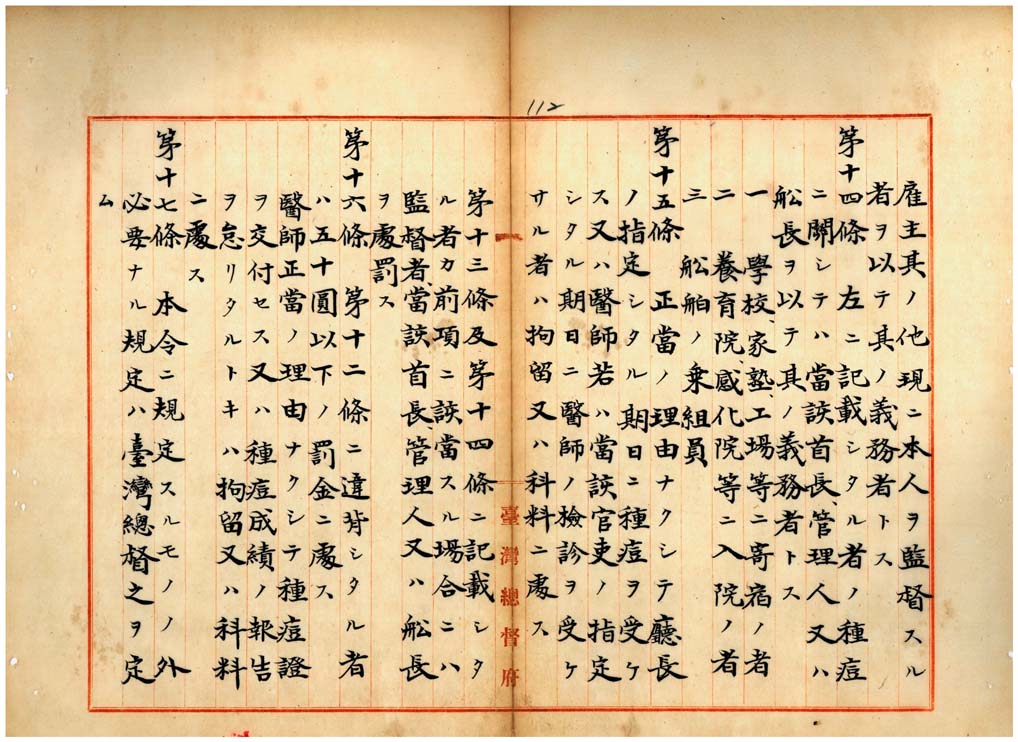 112
雇主其ノ他現ニ本人ヲ監督スル
者ヲ以テ其ノ義務者トス
第十四條 左ニ記載シタル者ノ種痘
ニ關シテハ當該首長、管理人又ハ
船長ヲ以テ其ノ義務者トス
一 學校、家塾、工場等ニ寄宿ノ者
二 養育院、感化院等ニ入院ノ者
三 船舶ノ乗組員
第十五條 正當ノ理由ナクシテ廳長
ノ指定シタル期日ニ種痘ヲ受ケ
ス又ハ醫師若ハ當該官吏ノ指定
シタル期日ニ醫師ノ檢診ヲ受ケ
サル者ハ拘留又ハ科料ニ處ス
臺灣總督府
第十三條及第十四條ニ記載シタ
ル者カ前項ニ該當スル場合ニハ
監督者、當該首長、管理人又ハ船長
ヲ處罰ス
第十六條 第十二條ニ違背シタル者
ハ五十圓以下ノ罰金ニ處ス
醫師正當ノ理由ナクシテ種痘證
ヲ交付セス又ハ種痘成績ノ報告
ヲ怠リタルトキハ拘留又ハ科料
ニ處ス
第十七條 本令ニ規定スルモノノ外
必要ナル規定ハ臺灣總督之ヲ定
ム